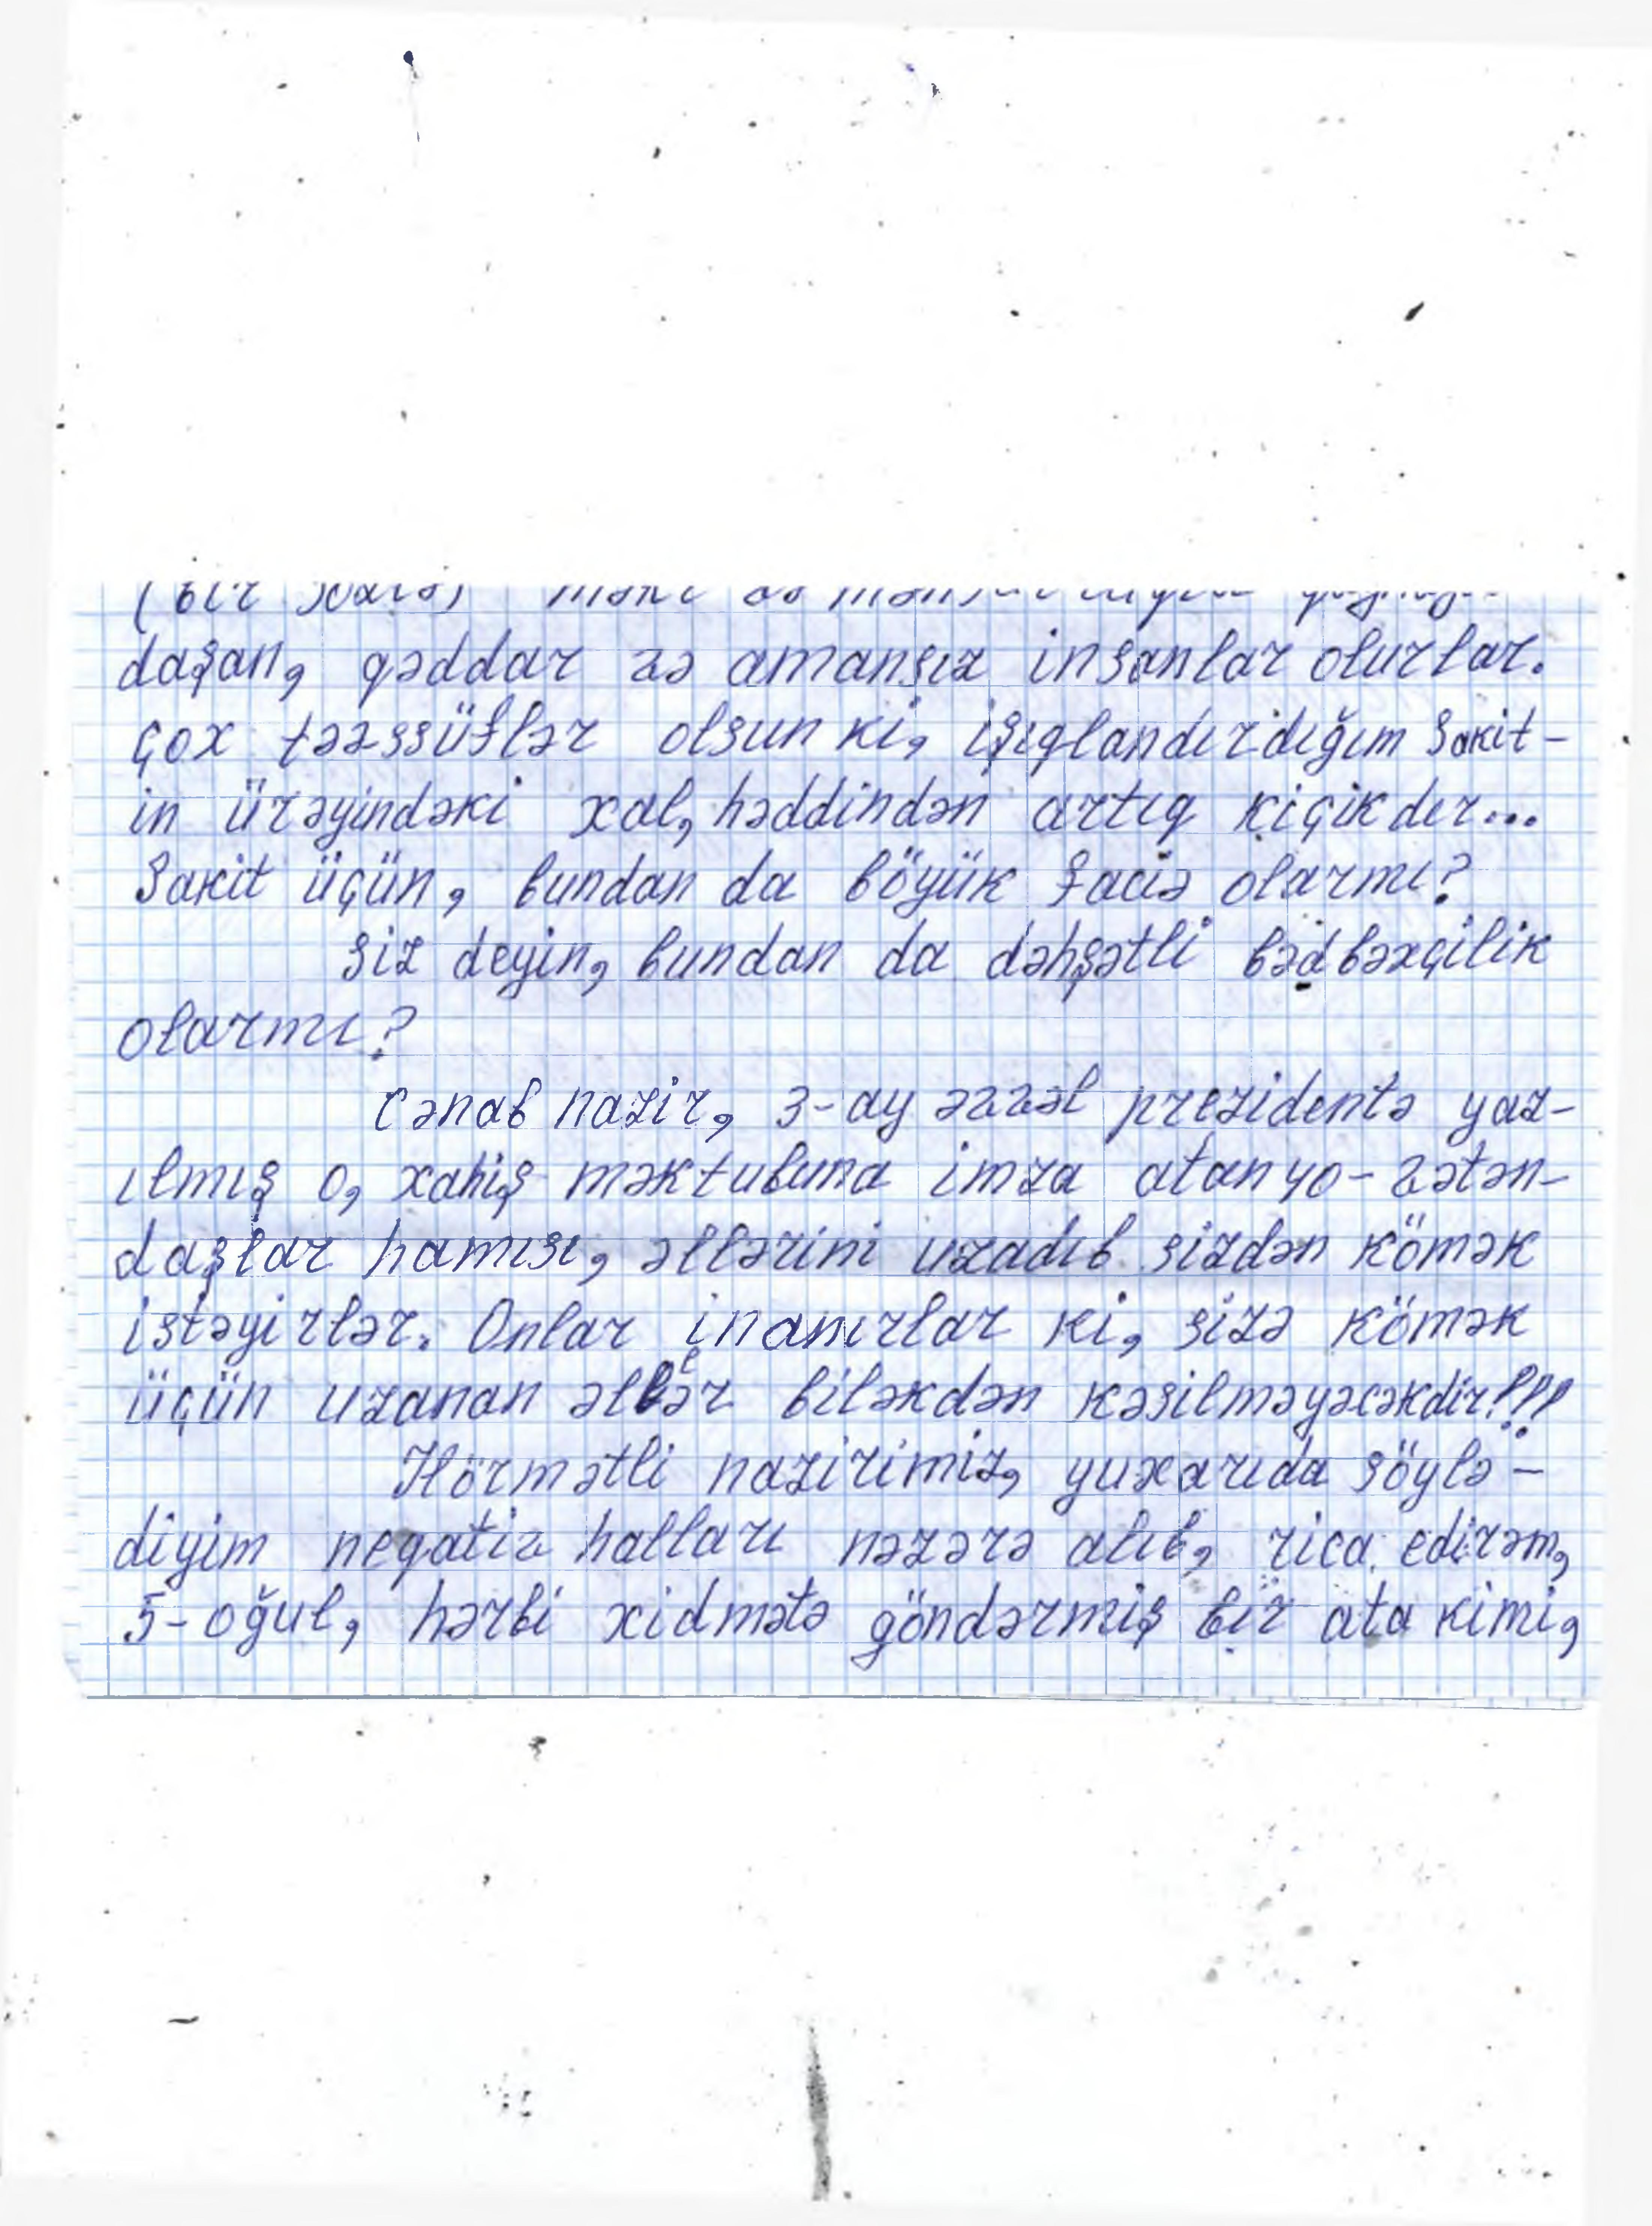 (bir
daşan, qəddar və amansız insanlar olurlar.
Çox təəssüflər olsun ki, işıqlandırdığım Sakit-
in ürəyindəki xal, həddindən artıq kiçikdır...
Sakit üçün, bundan da böyük faciə olarmı?
Siz deyin, bundan da dəhşətli bədbəxçilik
olarmı?
Cənab nazir, 3-ay əvvəl prezidentə yaz-
ılmış o, xahiş məktubuna imza atan 40-vətən-
daşlar hamısı, əllərini uzadıb sizdən kömək
istəyirlər. Onlar inanırlar ki, sizə kömək
üçün uzanan əllər biləkdən kəsilməyəcəkdir!!!
Hörmətli nazirimiz, yuxarıda söylə-
diyim neqativ halları nəzərə alıb, rica edirəm,
5-oğul, hərbi xidmətə göndərmiş bir ata kimi,